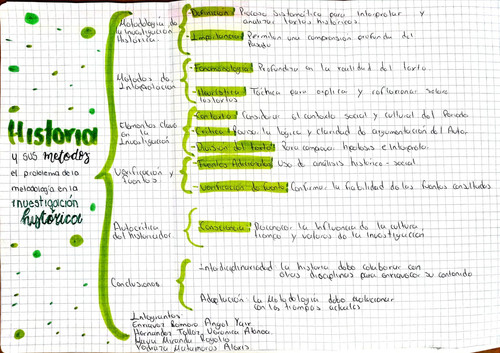 Historia
y sus metodos
el problema de la
metodología en la
investigación
histórica
Metodología de
la Investigación
Histórica.
- Definición: Proceso Sistemático para interpretar y
analizar textos históricos.
- Importancia: Permiten una comprensión profunda del
Pasado
Métodos de
Interpretación
- Fenomenología: Profundiza en la realidad del texto.
- Heurística: Táctica para explica y reflexionar sobre
los textos
Elementos clave
en la
Investigación
- Contexto: Considerar el contexto social y cultural del Periodo
- Crítica: la lógica y claridad de argumentación del Autor.
- División del texto: Para comparar hipótesis e
Verificación y
Fuentes
- Fuentes Adicionales: Uso de análisis histórico - social
- Verificación de fuente: Confirmar la fiabilidad de las fuentes consultadas
Autocrítica
del historiador
Consciencia: Reconocer la influencia de la cultura,
tiempo y valores de la investigación
Conclusiones
Interdisciplinariedad la historia debe colaborar con
otras disciplinas para enriquecer su contenido
Adaptación: La Metodología debe evolucionar
con los tiempos actuales
Integrantes:
Romero Angel Yair
Hernández Veronica
Miranda Rogelio
Matamoros Alexis